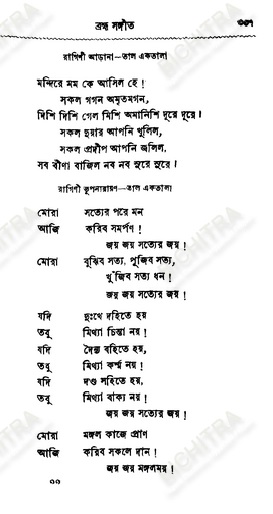 ব্রহ্ম সঙ্গীত ৩৩৭
রাগিণী আড়ানা—তাল একতালা
মন্দিরে মম কে আসিল হে !
সকল গগন অমৃতমগন,
দিশি দিশি গেল মিশি অমানিশি দূরে দূরে ।
সকল দুয়ার আপনি খুলিল,
সকল প্রদীপ আপনি জ্বলিল,
সব বীণা বাজিল নব নব সুরে সুরে ।
রাগিণী ভূপনারায়ণ—তাল একতালা
মোরা সত্যের পরে মন
আজি করিব সমর্পণ !
জয় জয় সত্যের জয় !
মোরা বুঝিব সত্য, পূজিব সত্য,
খুঁজিব সত্য ধন !
জয় জয় সত্যের জয় !
যদি দুঃখে দহিতে হয়
তবু মিথ্যা চিন্তা নয় !
যদি দৈন্য বহিতে হয়,
তবু মিথ্যা কর্ম্ম নয় !
যদি দণ্ড সহিতে হয়,
তবু মিথ্যা বাক্য নয় !
জয় জয় সত্যের জয় !
মোরা মঙ্গল কাজে প্রাণ
আজি করিব সকলে দান !
জয় জয় মঙ্গলময় !